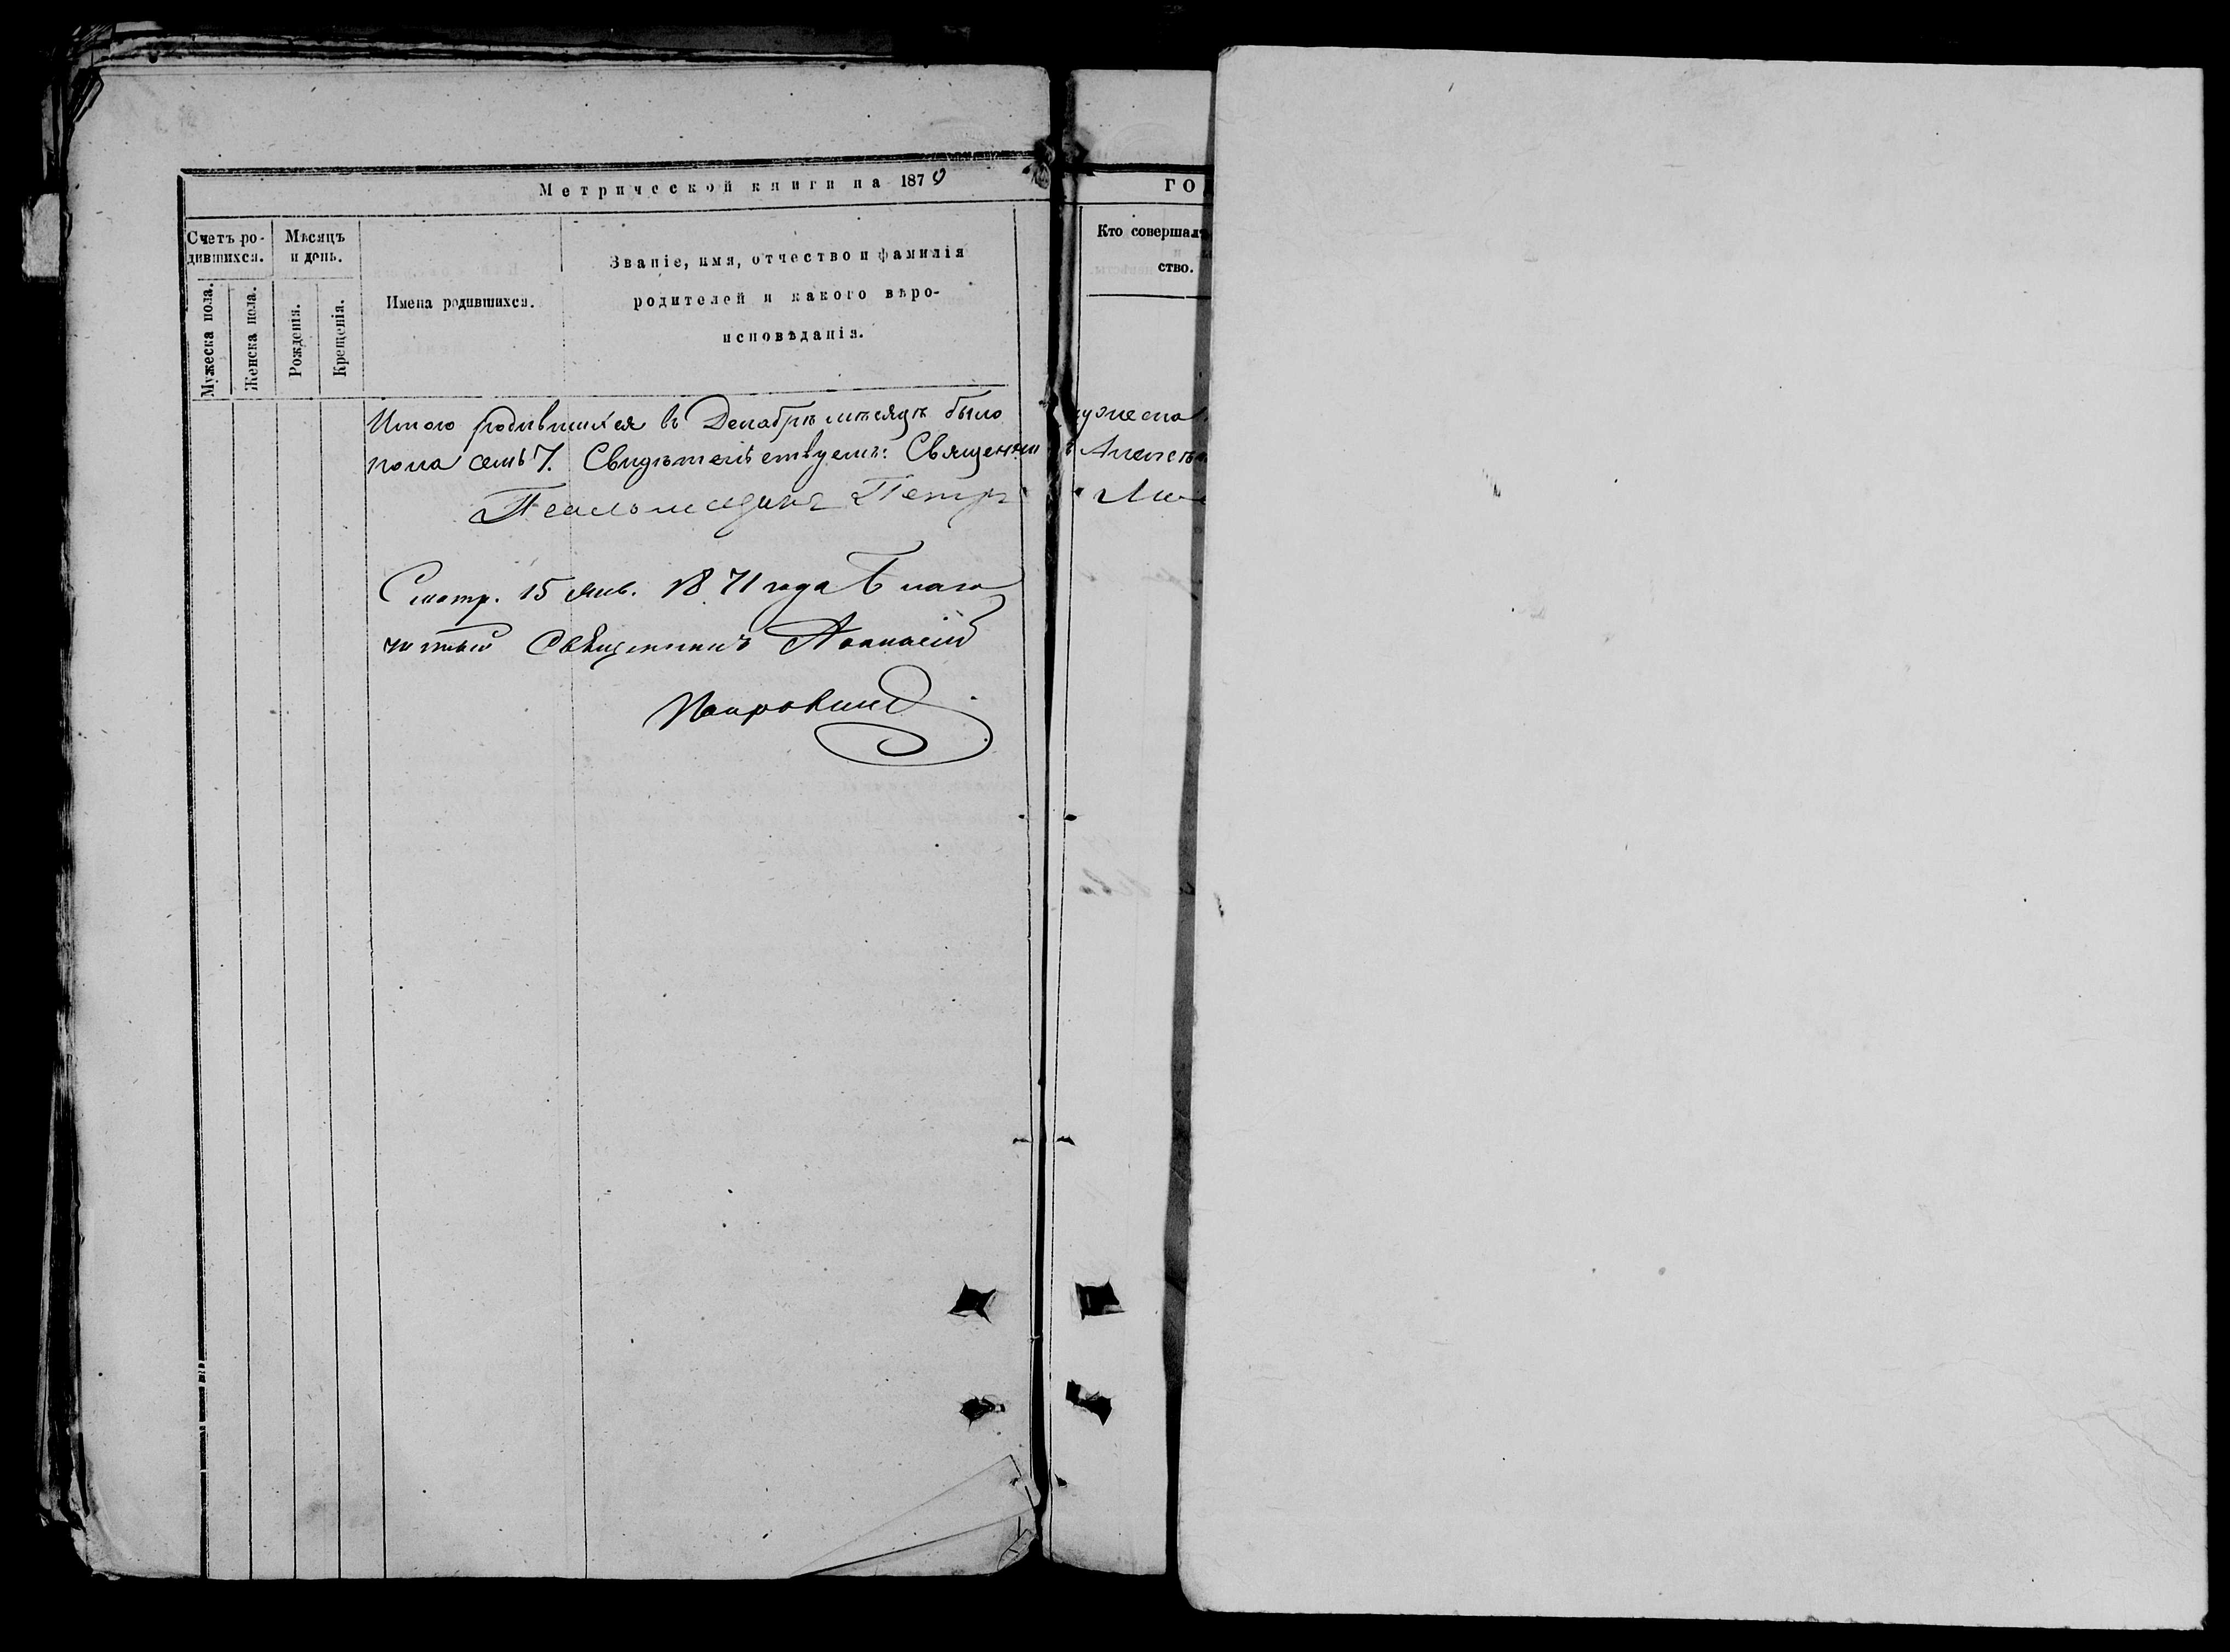 Метрической книги на 1870
ГО
Счетъ ро-
дившихся.
Мѣсяцъ
и день.
Мужеска пола.
Женска пола.
Рожденія.
Крещенія.
Имена родившихся.
Званіе, имя, отчество и фамилія
родителей и какого вѣро-
исповѣданія.
Кто совершалъ
ство.
Итого родившихся въ Декабрѣ мѣсяцѣ было мужеска
пола семь 7. Свидѣтельствуемъ: Священникъ Алексѣй
Псаломщикъ Петръ
Смотр. 15 Янв. 1871 года Благо
чинный Священникъ Аѳанасій
Покровскій